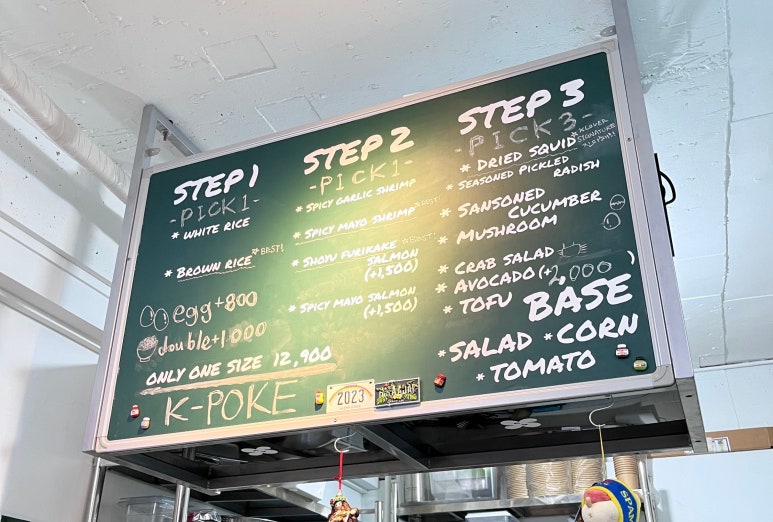 STEP 1
- PICK 1 -
* WHITE RICE
* BROWN RICE *BEST!
egg +800
double +1000
ONLY ONE SIZE 12,900
K-POKE
STEP 2
- PICK 1 -
* SPICY GARLIC SHRIMP
* SPICY MAYO SHRIMP *BEST!
* SHOYU FURIKAKE *BEST!
SALMON
(+1,500)
* SPICY MAYO SALMON
(+1,500)
STEP 3
- PICK 3 -
* DRIED SQUID
SIGNATURE
* SEASONED PICKLED
RADISH
* SANSONED
CUCUMBER
* MUSHROOM
* CRAB SALAD
* AVOCADO (+2,000)
* TOFU
BASE
* SALAD * CORN
* TOMATO
2023
SPAIN